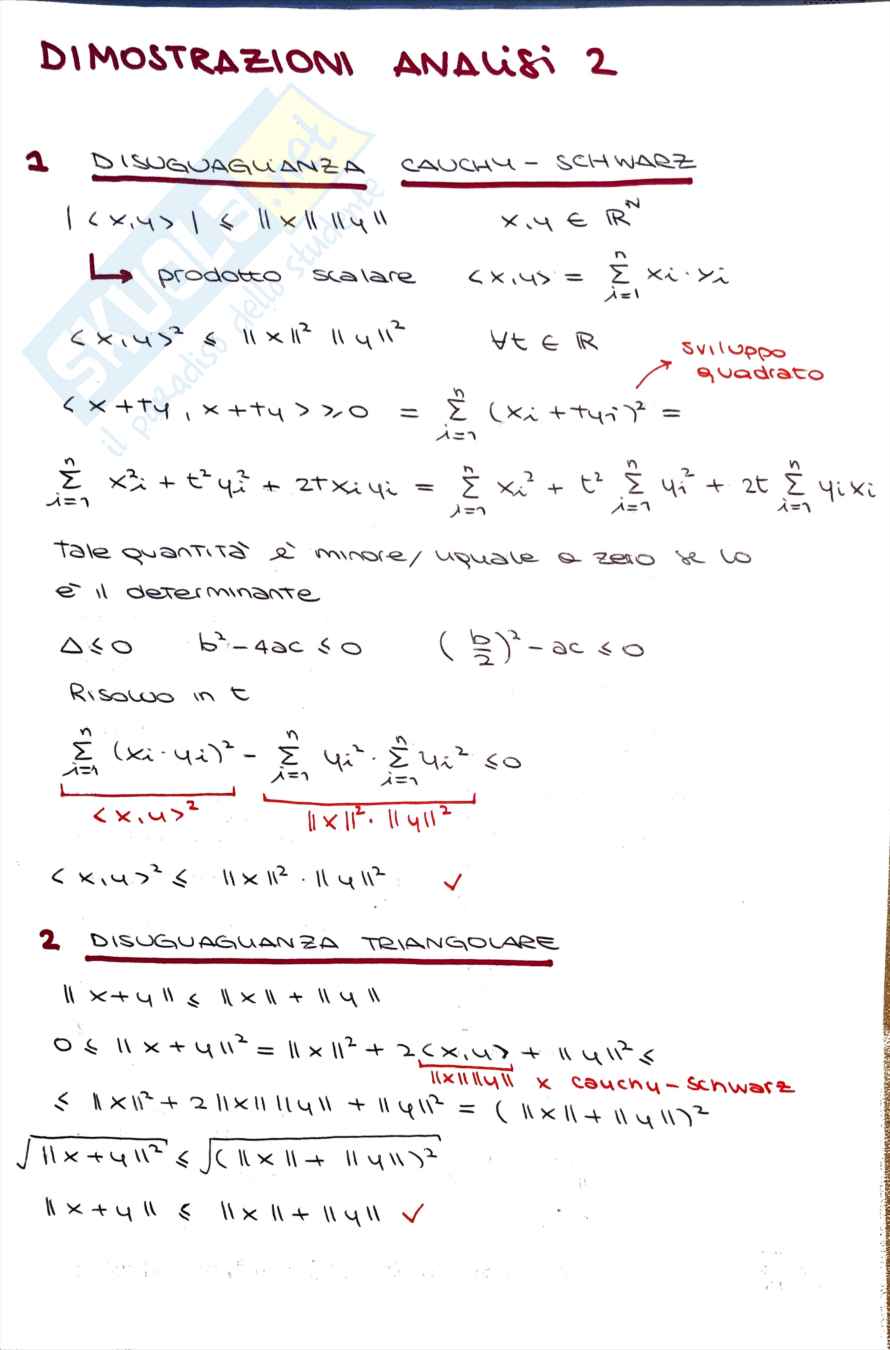 DIMOSTRAZIONI ANALISI 2
SKUOLA.net
il paradiso dello studente
1 DISUGUAGLIANZA CAUCHY - SCHWARZ
|<x,y>| ≤ ||x|| ||y|| x,y ∈ ℝᴺ
↳ prodotto scalare <x,y> = Σ_{i=1}^{n} xi · yi
<x,y>² ≤ ||x||² ||y||² ∀t ∈ ℝ
sviluppo
quadrato
<x+ty, x+ty> ≥ 0 = Σ_{i=1}^{n} (xi + tyi)² =
Σ_{i=1}^{n} x²i + t²yi² + 2txiyi = Σ_{i=1}^{n} xi² + t² Σ_{i=1}^{n} yi² + 2t Σ_{i=1}^{n} yixi
Tale quantità è minore/uguale a zero se lo
è il determinante
Δ ≤ 0 b² - 4ac ≤ 0 (b/2)² - ac ≤ 0
Risolvo in t
Σ_{i=1}^{n} (xi · yi)² - Σ_{i=1}^{n} yi² · Σ_{i=1}^{n} yi² ≤ 0
<x,y>² ||x||² · ||y||²
<x,y>² ≤ ||x||² · ||y||² ✓
2 DISUGUAGLIANZA TRIANGOLARE
||x+y|| ≤ ||x|| + ||y||
0 ≤ ||x+y||² = ||x||² + 2<x,y> + ||y||² ≤
||x|| ||y|| x cauchy-schwarz
≤ ||x||² + 2||x|| ||y|| + ||y||² = (||x|| + ||y||)²
√||x+y||² ≤ √(||x|| + ||y||)²
||x+y|| ≤ ||x|| + ||y|| ✓